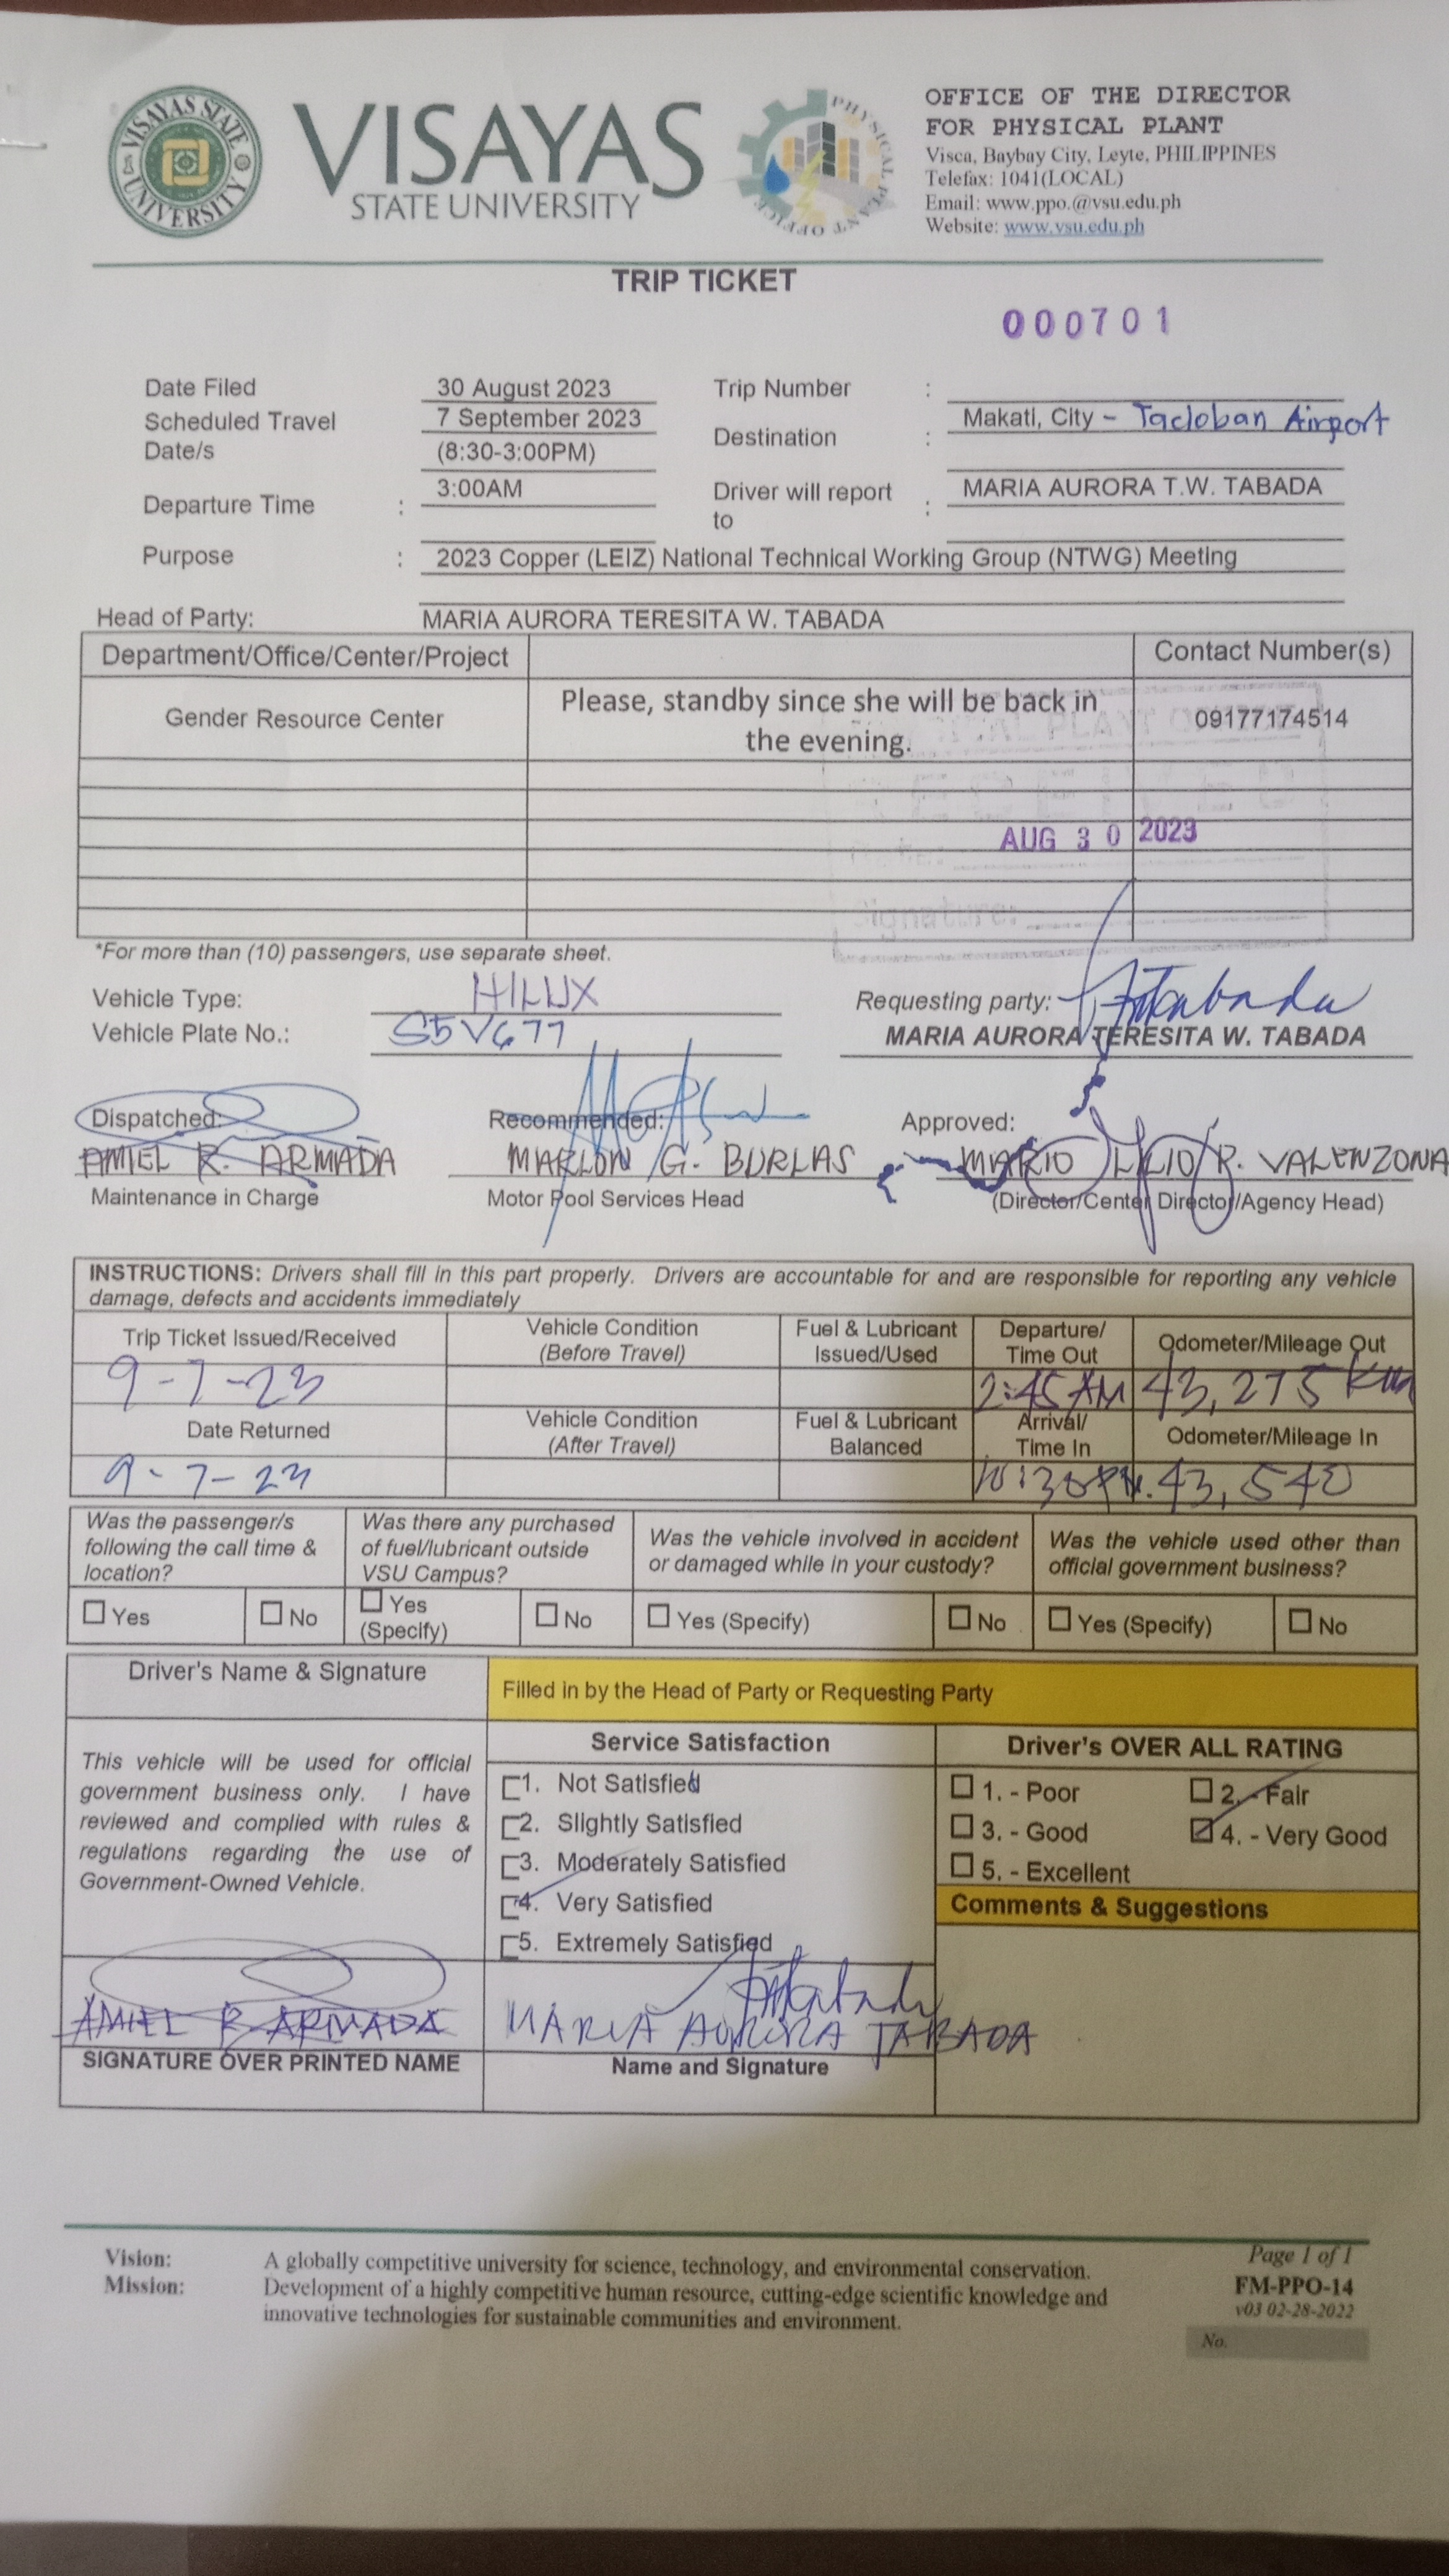 VISAYAS STATE UNIVERSITY
VISAYAS
STATE UNIVERSITY
PHYSICAL PLANT OFFICE
OFFICE OF THE DIRECTOR
FOR PHYSICAL PLANT
Visca, Baybay City, Leyte, PHILIPPINES
Telefax: 1041(LOCAL)
Email: www.ppo.@vsu.edu.ph
Website: www.vsu.edu.ph
TRIP TICKET
000701
Date Filed 30 August 2023 Trip Number :
Scheduled Travel Date/s 7 September 2023 (8:30-3:00PM) Destination : Makati, City - Tacloban Airport
Departure Time : 3:00AM Driver will report to : MARIA AURORA T.W. TABADA
Purpose : 2023 Copper (LEIZ) National Technical Working Group (NTWG) Meeting
Head of Party: MARIA AURORA TERESITA W. TABADA
Department/Office/Center/Project Contact Number(s)
Gender Resource Center Please, standby since she will be back in the evening. 09177174514
AUG 30 2023
Signature:
*For more than (10) passengers, use separate sheet.
Vehicle Type: HILUX Requesting party:
Vehicle Plate No.: S5V677 MARIA AURORA TERESITA W. TABADA
Dispatched: Recommended: Approved:
AMIEL R. ARMADA MARLON G. BURLAS MARIO LILIO P. VALENZONA
Maintenance in Charge Motor Pool Services Head (Director/Center Director/Agency Head)
INSTRUCTIONS: Drivers shall fill in this part properly. Drivers are accountable for and are responsible for reporting any vehicle
damage, defects and accidents immediately
Trip Ticket Issued/Received Vehicle Condition (Before Travel) Fuel & Lubricant Issued/Used Departure/ Time Out Odometer/Mileage Out
9-7-23 2:45 AM 43,275 km
Date Returned Vehicle Condition (After Travel) Fuel & Lubricant Balanced Arrival/ Time In Odometer/Mileage In
9-7-23 10:30PM. 43,540
Was the passenger/s following the call time & location? Was there any purchased of fuel/lubricant outside VSU Campus? Was the vehicle involved in accident or damaged while in your custody? Was the vehicle used other than official government business?
Yes No Yes (Specify) No Yes (Specify) No Yes (Specify) No
Driver's Name & Signature Filled in by the Head of Party or Requesting Party
Service Satisfaction Driver's OVER ALL RATING
This vehicle will be used for official
government business only. I have
reviewed and complied with rules &
regulations regarding the use of
Government-Owned Vehicle.
1. Not Satisfied
2. Slightly Satisfied
3. Moderately Satisfied
4. Very Satisfied
5. Extremely Satisfied
1. - Poor 2. - Fair
3. - Good 4. - Very Good
5. - Excellent
Comments & Suggestions
AMIEL R ARMADA MARIA AURORA TABADA
SIGNATURE OVER PRINTED NAME Name and Signature
Vision: A globally competitive university for science, technology, and environmental conservation.
Mission: Development of a highly competitive human resource, cutting-edge scientific knowledge and
innovative technologies for sustainable communities and environment.
Page 1 of 1
FM-PPO-14
v03 02-28-2022
No.